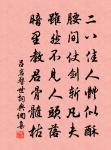 二八佳人體似酥
腰間仗劍斬凡夫
雖然不見人頭落
暗里教君骨髓枯
呂岩警世詩典網集